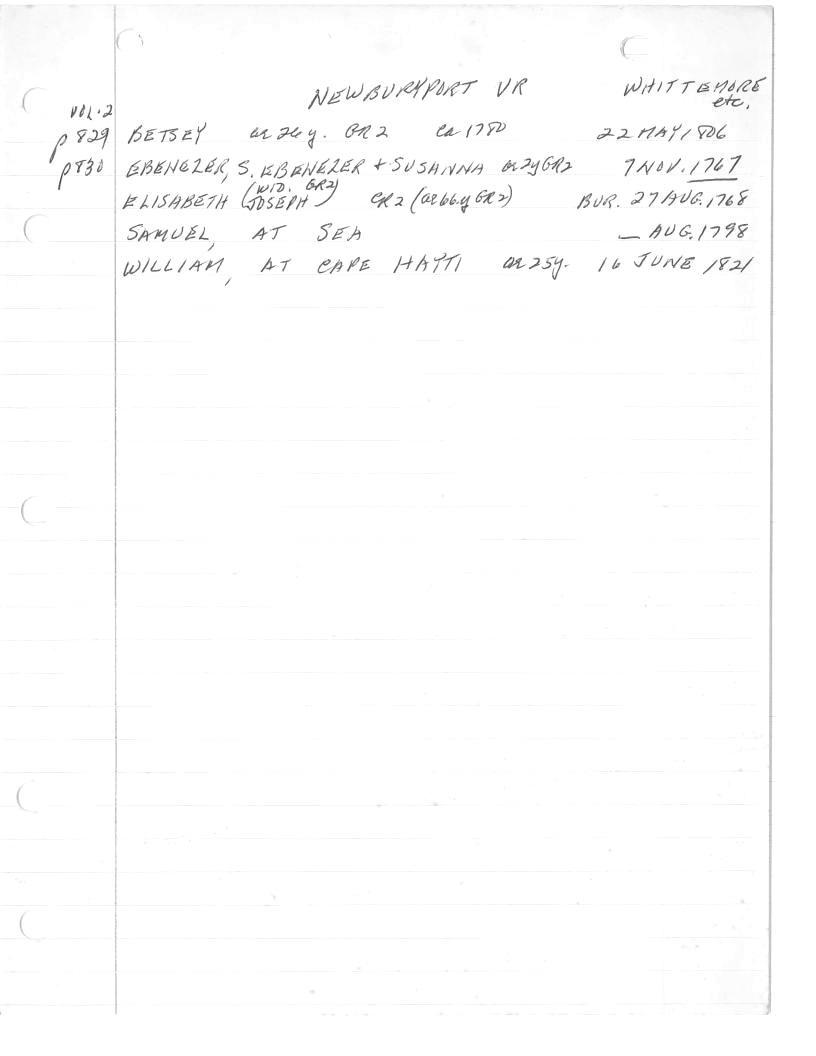 NEWBURYPORT VR WHITTEMORE
etc.
VOL. 2
p 829 BETSEY ae 26 y. GR 2 ca 1780 22 MAY 1806
p 830 EBENEZER, S. EBENEZER + SUSANNA ae 2y GR2 7 NOV. 1767
(WID. GR2)
ELISABETH JOSEPH CR 2 (ae 66y GR2) BUR. 27 AUG. 1768
SAMUEL, AT SEA — AUG. 1798
WILLIAM, AT CAPE HAYTI ae 25y. 16 JUNE 1821